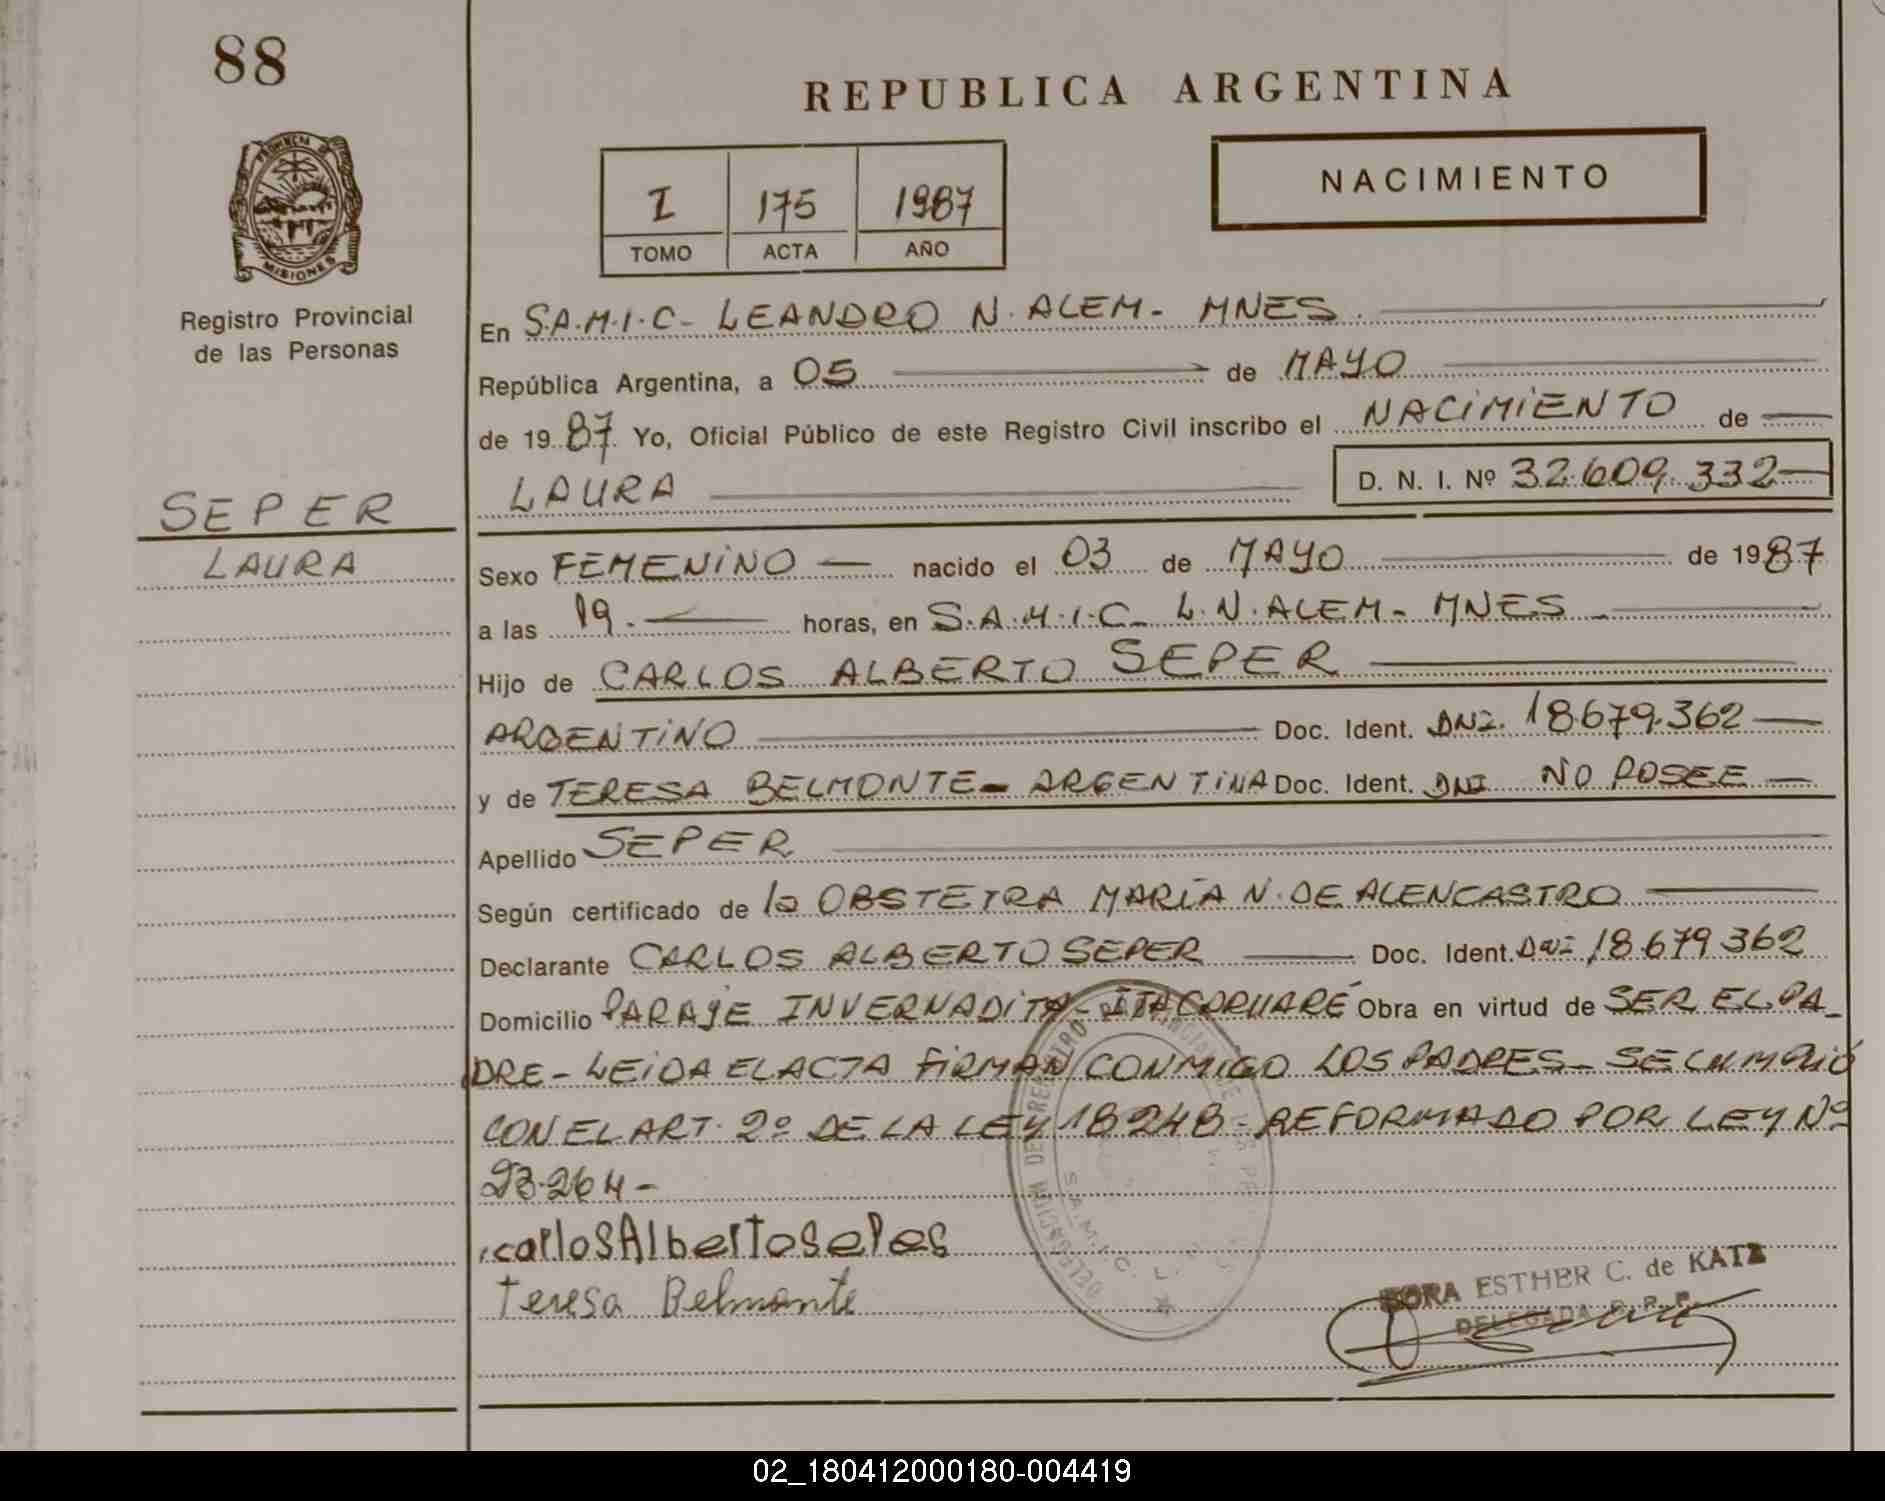 88
REPUBLICA ARGENTINA
PROVINCIA DE
MISIONES
Registro Provincial
de las Personas
I 175 1987
TOMO ACTA AÑO
NACIMIENTO
En S.A.M.I.C- LEANDRO N. ALEM- MNES.
República Argentina, a 05 de MAYO
de 1987 Yo, Oficial Público de este Registro Civil inscribo el NACIMIENTO de
LAURA D. N. I. Nº 32.609.332
SEPER
LAURA
Sexo FEMENINO nacido el 03 de MAYO de 1987
a las 19. horas, en S.A.M.I.C- L.N. ALEM- MNES
Hijo de CARLOS ALBERTO SEPER
ARGENTINO Doc. Ident. DNI. 18.679.362
y de TERESA BELMONTE- ARGENTINA Doc. Ident. DNI NO POSEE
Apellido SEPER
Según certificado de la OBSTETRA MARÍA N. DE ALENCASTRO
Declarante CARLOS ALBERTO SEPER Doc. Ident. DNI 18.679.362
Domicilio PARAJE INVERNADITA- ITACARUARÉ Obra en virtud de SER EL PA-
DRE- LEIDA EL ACTA FIRMAN CONMIGO LOS PADRES- SE CUMPLIÓ
CON EL ART. 2º DE LA LEY 18248- REFORMADO POR LEY Nº
23.264-
carlosAlbertoSePeR
Teresa Belmonte
S.A.M.I.C. L.
ESTHER C. de KATZ
DELEGADA R. P. P.
02_180412000180-004419